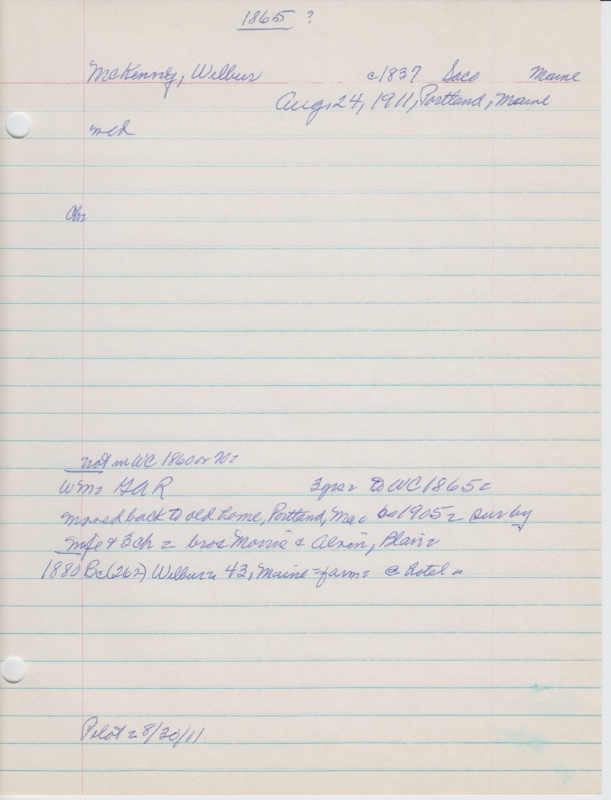 1865 ?
McKenney, Wilbur c1837 Saco Maine
Aug. 24, 1911, Portland, Maine
md
Ch:
not in WC 1860 or 70.
Wm= GAR 3 yrs= to WC 1865=
moved back to old home, Portland, Me= 1905= surv by
wife & 3 ch = bros Morris & Alvin, Blair=
1880 Bc (262) Wilbur= 43, Maine=farm= @ hotel =
Pilot = 8/30/11